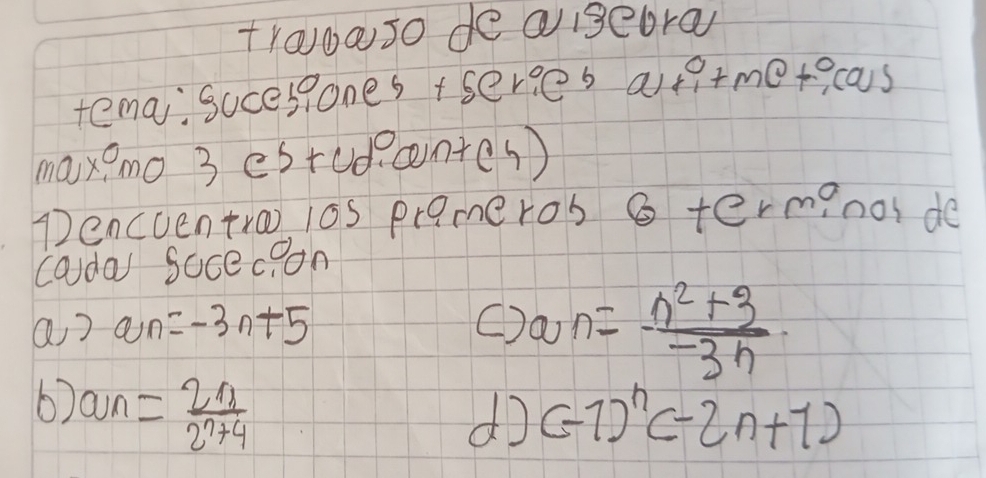 trabajo de algebra
tema: sucesiones + series aritmeticas
maximo 3 estudiantes)
1) encuentra los primeros 6 terminos de
cada sucecion
a) an = -3n+5
c) an = n²+3 / -3n
b) an = 2n / 2ⁿ+4
d) (-1)ⁿ (-2n+1)